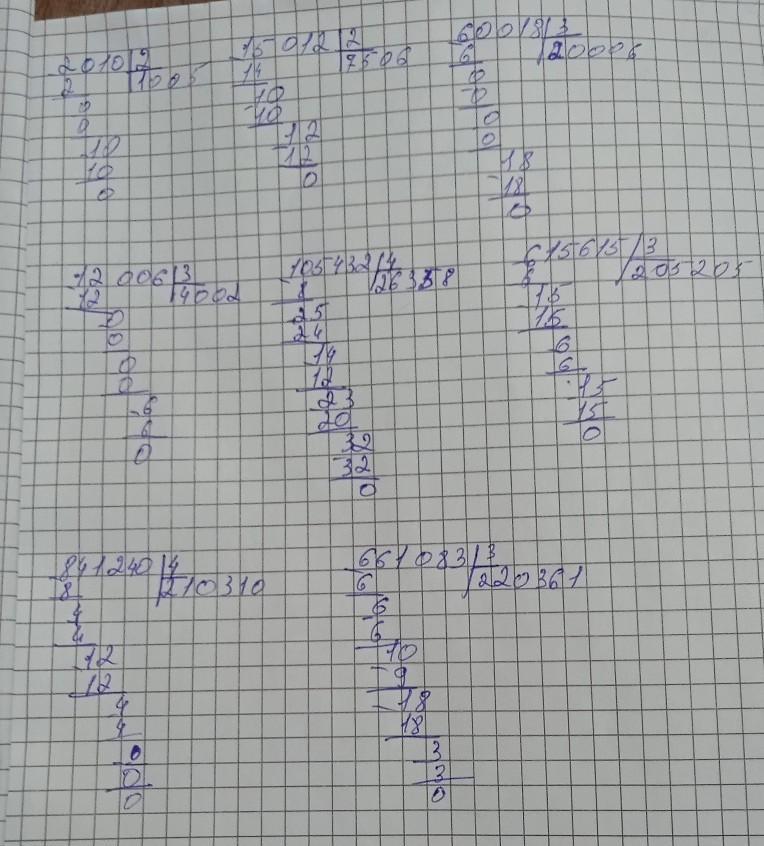 2010 2
2 1005
0
0
10
10
0
15012 2
14 7506
10
10
12
12
0
60018 3
6 20006
0
0
0
0
18
18
0
12006 3
12 4002
0
0
0
0
6
6
0
105432 4
8 26358
25
24
14
12
23
20
32
32
0
615615 3
6 205205
15
15
6
6
15
15
0
841240 4
8 210310
4
4
12
12
4
4
0
0
0
661083 3
6 220361
6
6
10
9
18
18
3
3
0